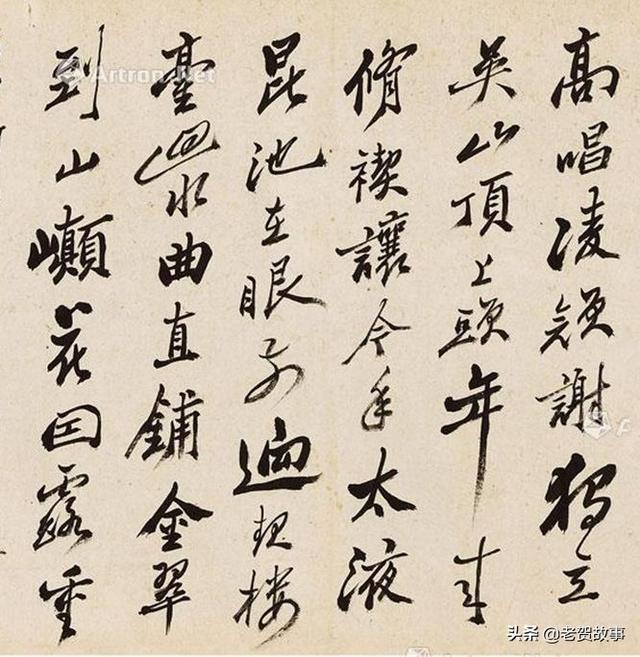 高唱凌顔謝獨立
吳山頂上頭年來
脩禊讓今年太液
昆池在眼前迴現樓
臺水曲直鋪金翠
到山巔花因露重
Artron.Net
头条 @老贺故事